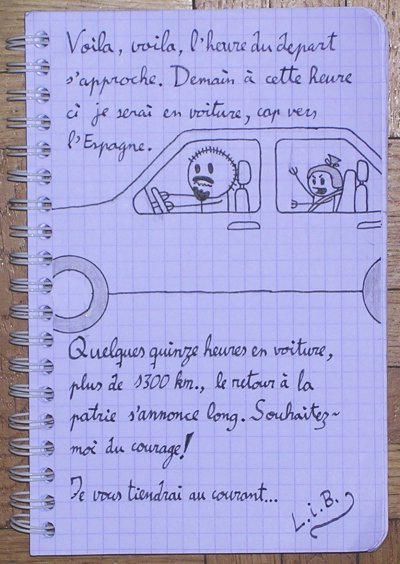 Voila, voila, l'heure du depart
s'approche. Demain à cette heure
ci je serai en voiture, cap vers
l'Espagne.
Quelques quinze heures en voiture,
plus de 1300 km., le retour à la
patrie s'annonce long. Souhaitez-
moi du courage!
Je vous tiendrai au courant...
L.i.B.